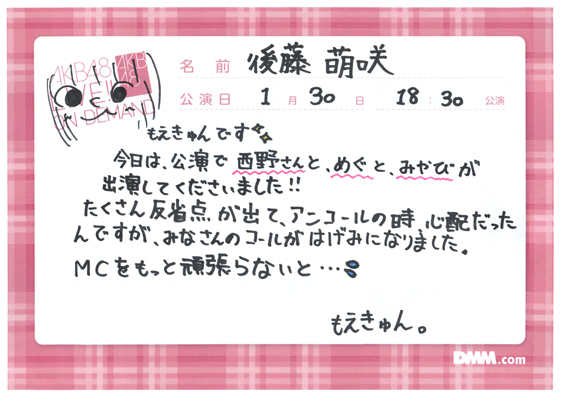 AKB48
LIVE!!
ON DEMAND
AKB
48
名前 後藤 萌咲
公演日 1月30日 18:30公演
もえきゅんです
今日は、公演で西野さんと、めぐと、みやびが
出演してくださいました!!
たくさん反省点が出て、アンコールの時、心配だった
んですが、みなさんのコールがはげみになりました。
MCをもっと頑張らないと…
もえきゅん。
DMM.com